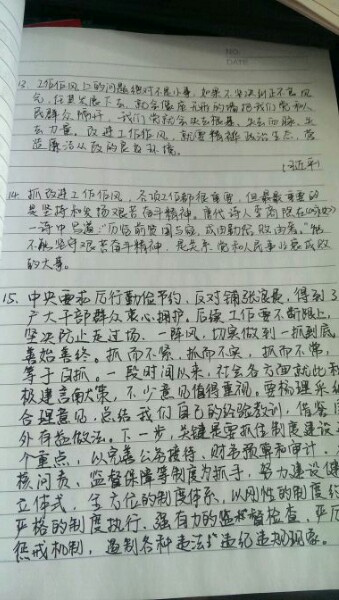 NO.
DATE
13. 工作作风上的问题绝对不是小事,如果不坚决纠正不良风
气,任其发展下去,就会像座无形的墙把我们党和人
民群众隔开,我们党就会失去根基、失去血脉、失
去力量。改进工作作风,就要精神政治生态,营
造廉洁从政的良好环境。
习近平
14. 抓改进工作作风,各项工作都很重要,但最重要的
是坚持和发扬艰苦奋斗精神。唐代诗人李商隐在《咏史》
一诗中写道:"历览前贤国与家,成由勤俭败由奢。"能
不能坚守艰苦奋斗精神,是关系党和人民事业兴衰成败
的大事。
15. 中央要求厉行勤俭节约,反对铺张浪费,得到了
广大干部群众衷心拥护。后续工作要不断跟上,
坚决防止走过场、一阵风,切实做到一抓到底、
善始善终。抓而不紧,抓而不实,抓而不常,
等于白抓。一段时间以来,社会各方面就此积
极建言献策,不少意见值得重视。要梳理采纳
合理意见,总结我们自己的经验教训,借鉴国
外有益做法。下一步,关键是要抓住制度建设这
个重点,以完善公务接待、财务预算和审计、
核问责、监督保障等制度为抓手,努力建设健
立体式、全方位的制度体系,以刚性的制度约
严格的制度执行、强有力的监督检查、严厉
惩戒机制,遏制各种违法违纪违规现象。